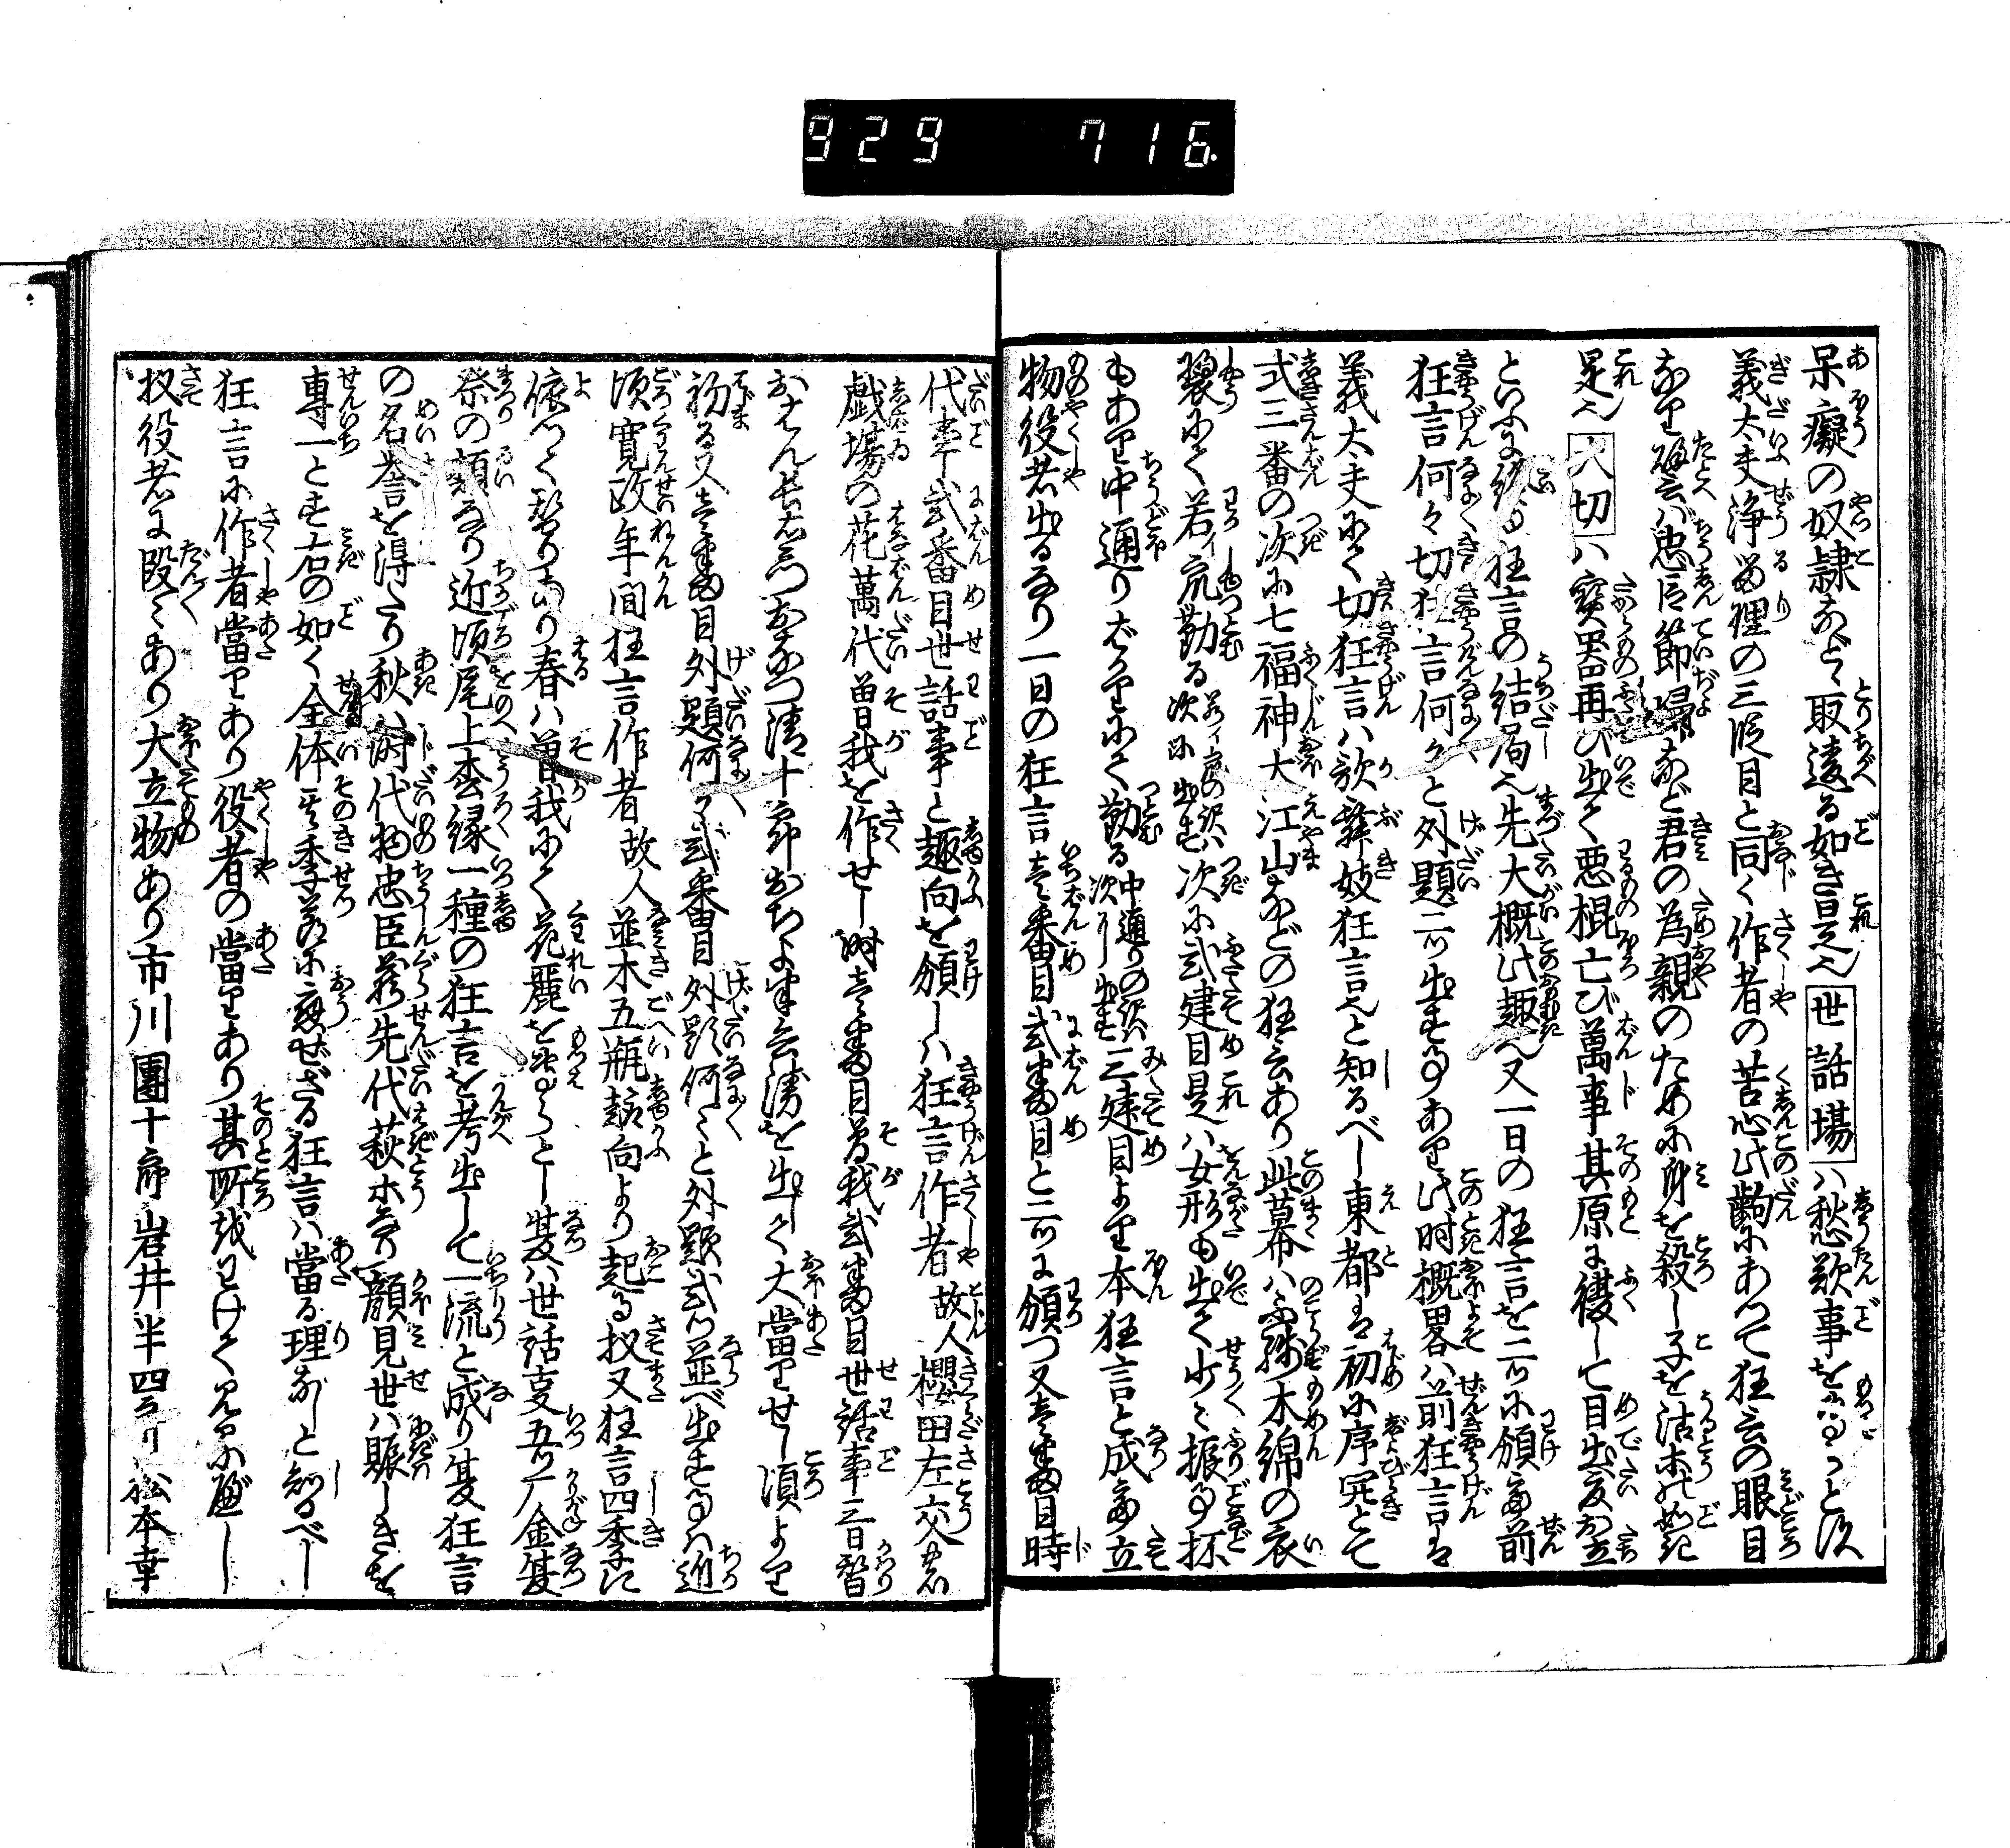 929 716
呆癡の奴隷などゝ取違る如き是也世話場ハ愁歎事をいふ
義太夫浄留理の三段目と同く作者の苦心此齣にあつて狂言の眼目
なり譬ヘバ忠臣節婦など君の為親のために身を殺し子を沽却の如き
是也大切ハ寳器再び出て悪棍亡び萬事其原に復して目出度お立
といふに終る狂言の結局也先大概此趣也又一日の狂言を二ツに頒て前
狂言何々切狂言何々と外題二ツ出す事あり此时概畧ハ前狂言は
義太夫にて切狂言ハ歌舞妓狂言也と知るべし東都は初に序開とて
式三番の次に七福神大江山などの狂言あり此幕ハ不残木綿の衣
裳にて若イ衆勤る次に弐建目是ハ女形も出て少々振事抔
もあり中通りばかりにて勤る三建目より本狂言と成て立
物役者出るなり一日の狂言壱番目弐番目と二ツに頒つ又壱番目時
代事弐番目世話事と趣向を頒しハ狂言作者故人櫻田左交
戯場の花萬代曽我を作せし时壱番目曽我弐番目世話事三日替
おせん長右衛門おなつ清十郎おちよ半兵衛を出して大當りせし頃より
初る又壱番目外題何々弐番目外題何々と外題弐ツ並べ出す事ハ近
頃寛政年間狂言作者故人並木五瓶趣向より起る扨又狂言四季に
依つて替りあり春ハ曽我にて花麗を専らとし夏ハ世話事五月ハ金
祭の類なり近頃尾上松緑一種の狂言を考出して一流と成り夏狂言
の名誉を得たり秋ハ时代物忠臣蔵先代萩等顔見世ハ賑しきを
専一とす右の如く全体其季節に應ぜざる狂言ハ當る理なしと知るべし
狂言に作者當りあり役者の當りあり其所試わけて見るに
扨役者に段々あり大立物あり市川團十郎岩井半四郎松本幸